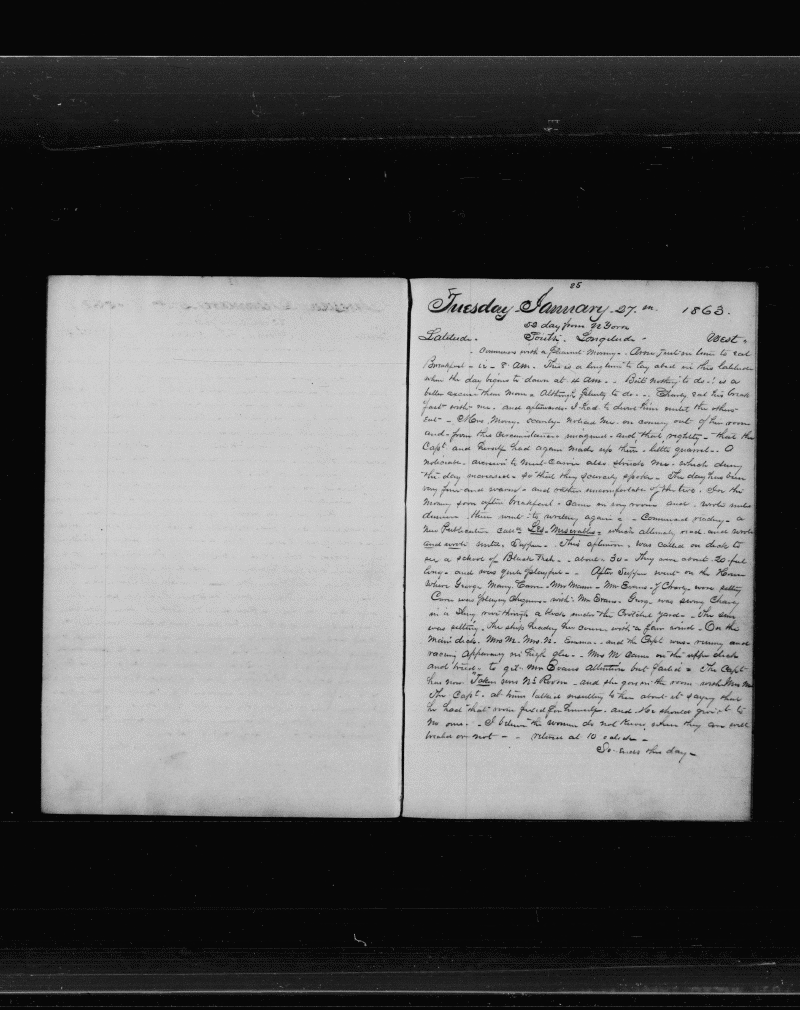 25
Tuesday January 27. th 1863.
52 day from N York
Latitude. South. Longitude - West.
Commences with a pleasant Morning - Arose just in time to eat
Breakfast - is - 8 AM. This is a long time to lay abed in this Latitude
when the day begins to dawn at 4 AM. - But nothing to do - is a
better excuse than man a Although plenty to do - . Charly eat his break
fast with me. and afterwards I had to drive him until the others
eat - Mrs. Many scarcely noticed me. on coming out of her room
and from this circumstance imagined and that rightly - that the
Capt and herself had again made up their little quarrel - O
noticeable to Carrie also me - which during
the day increased - so that they scarcely spoke - The day has been
very fine and warm - and rather uncomfortable of the two. In the
morning soon after breakfast came in my room and wrote until
dinner, then went to writing again - Commenced reading - a
New Publication called Les Miserables - which alternately read and wrote
and wrote until Supper - This afternoon was called on deck to
see a school of Black Fish - about 30 - They were about 20 feet
long - and were quite playful - After Supper went on the House
where George Many. Carrie - Mrs Mann - Mr Evans & Charly were sitting
Carrie was playing with Mr Evans. George was swing Charly
in a sling rove through a block under the Crotchet yard - The sun
was setting. The ship heading her course with a fair wind. On the
Main deck. Mrs M. Mrs N. Emma - and the Capt was running and
racing apparently in high glee - Mrs M came on the upper deck
and tried to get Mr Evans Attention but failed - The Capt
has now Taken Mrs N's Room - and she goes in the room with Mrs M
The Capt. at times talked insulting to her about it saying that
he had that room for himself - and He should give it to
no one. - I believe the women do not know when they are well
treated or not - - retired at 10 oclock -
So ends this day -